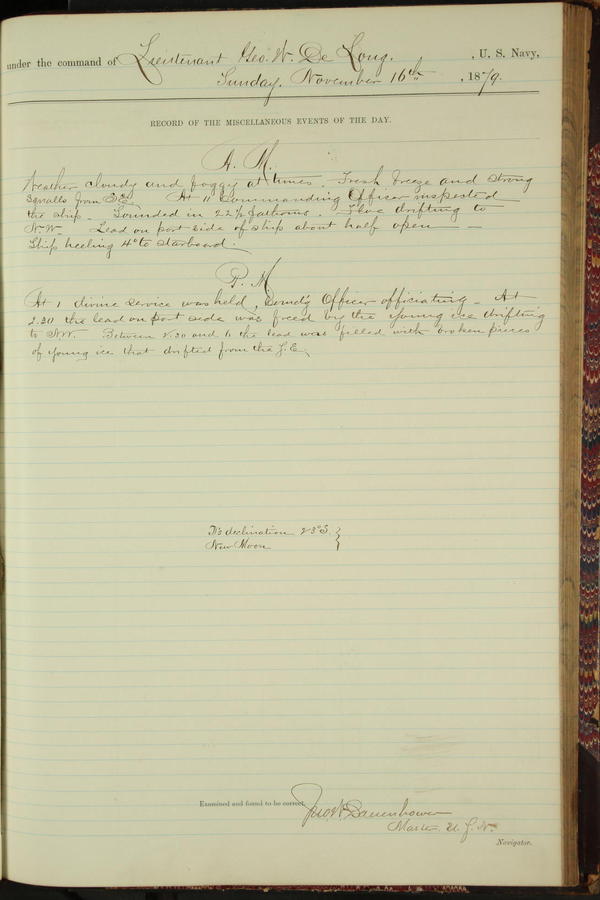 under the command of Lieutenant Geo. W. De Long. , U. S. Navy,
Sunday, November 16th , 1879.
RECORD OF THE MISCELLANEOUS EVENTS OF THE DAY.
A. M.
Weather cloudy and foggy at times. Fresh breeze and strong
squalls from SE. At 11 Commanding Officer inspected
the ship. Sounded in 22½ fathoms. Floe drifting to
N.W. Lead on port side of ship about half open
Ship heeling 4° to starboard.
P. M.
At 1 divine service was held, Comd'g Officer officiating. At
2.20 the lead on port side was freed by the young ice drifting
to NW. Between 2.20 and 6 the lead was filled with broken pieces
of young ice that drifted from the S.E.
declination 23° S. }
New Moon
Examined and found to be correct,
Jno. W. Danenhower
Master. U.S.N.
Navigator.